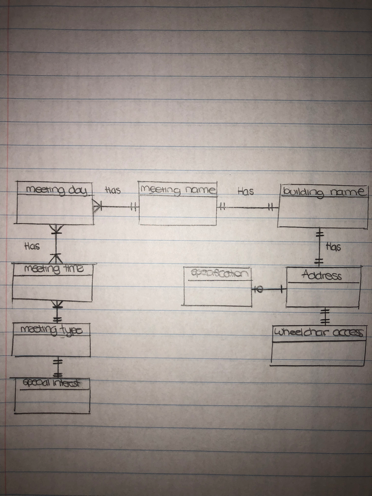 meeting day
Has
meeting name
Has
building name
Has
Has
meeting time
Address
meeting type
wheelchair access
special interest